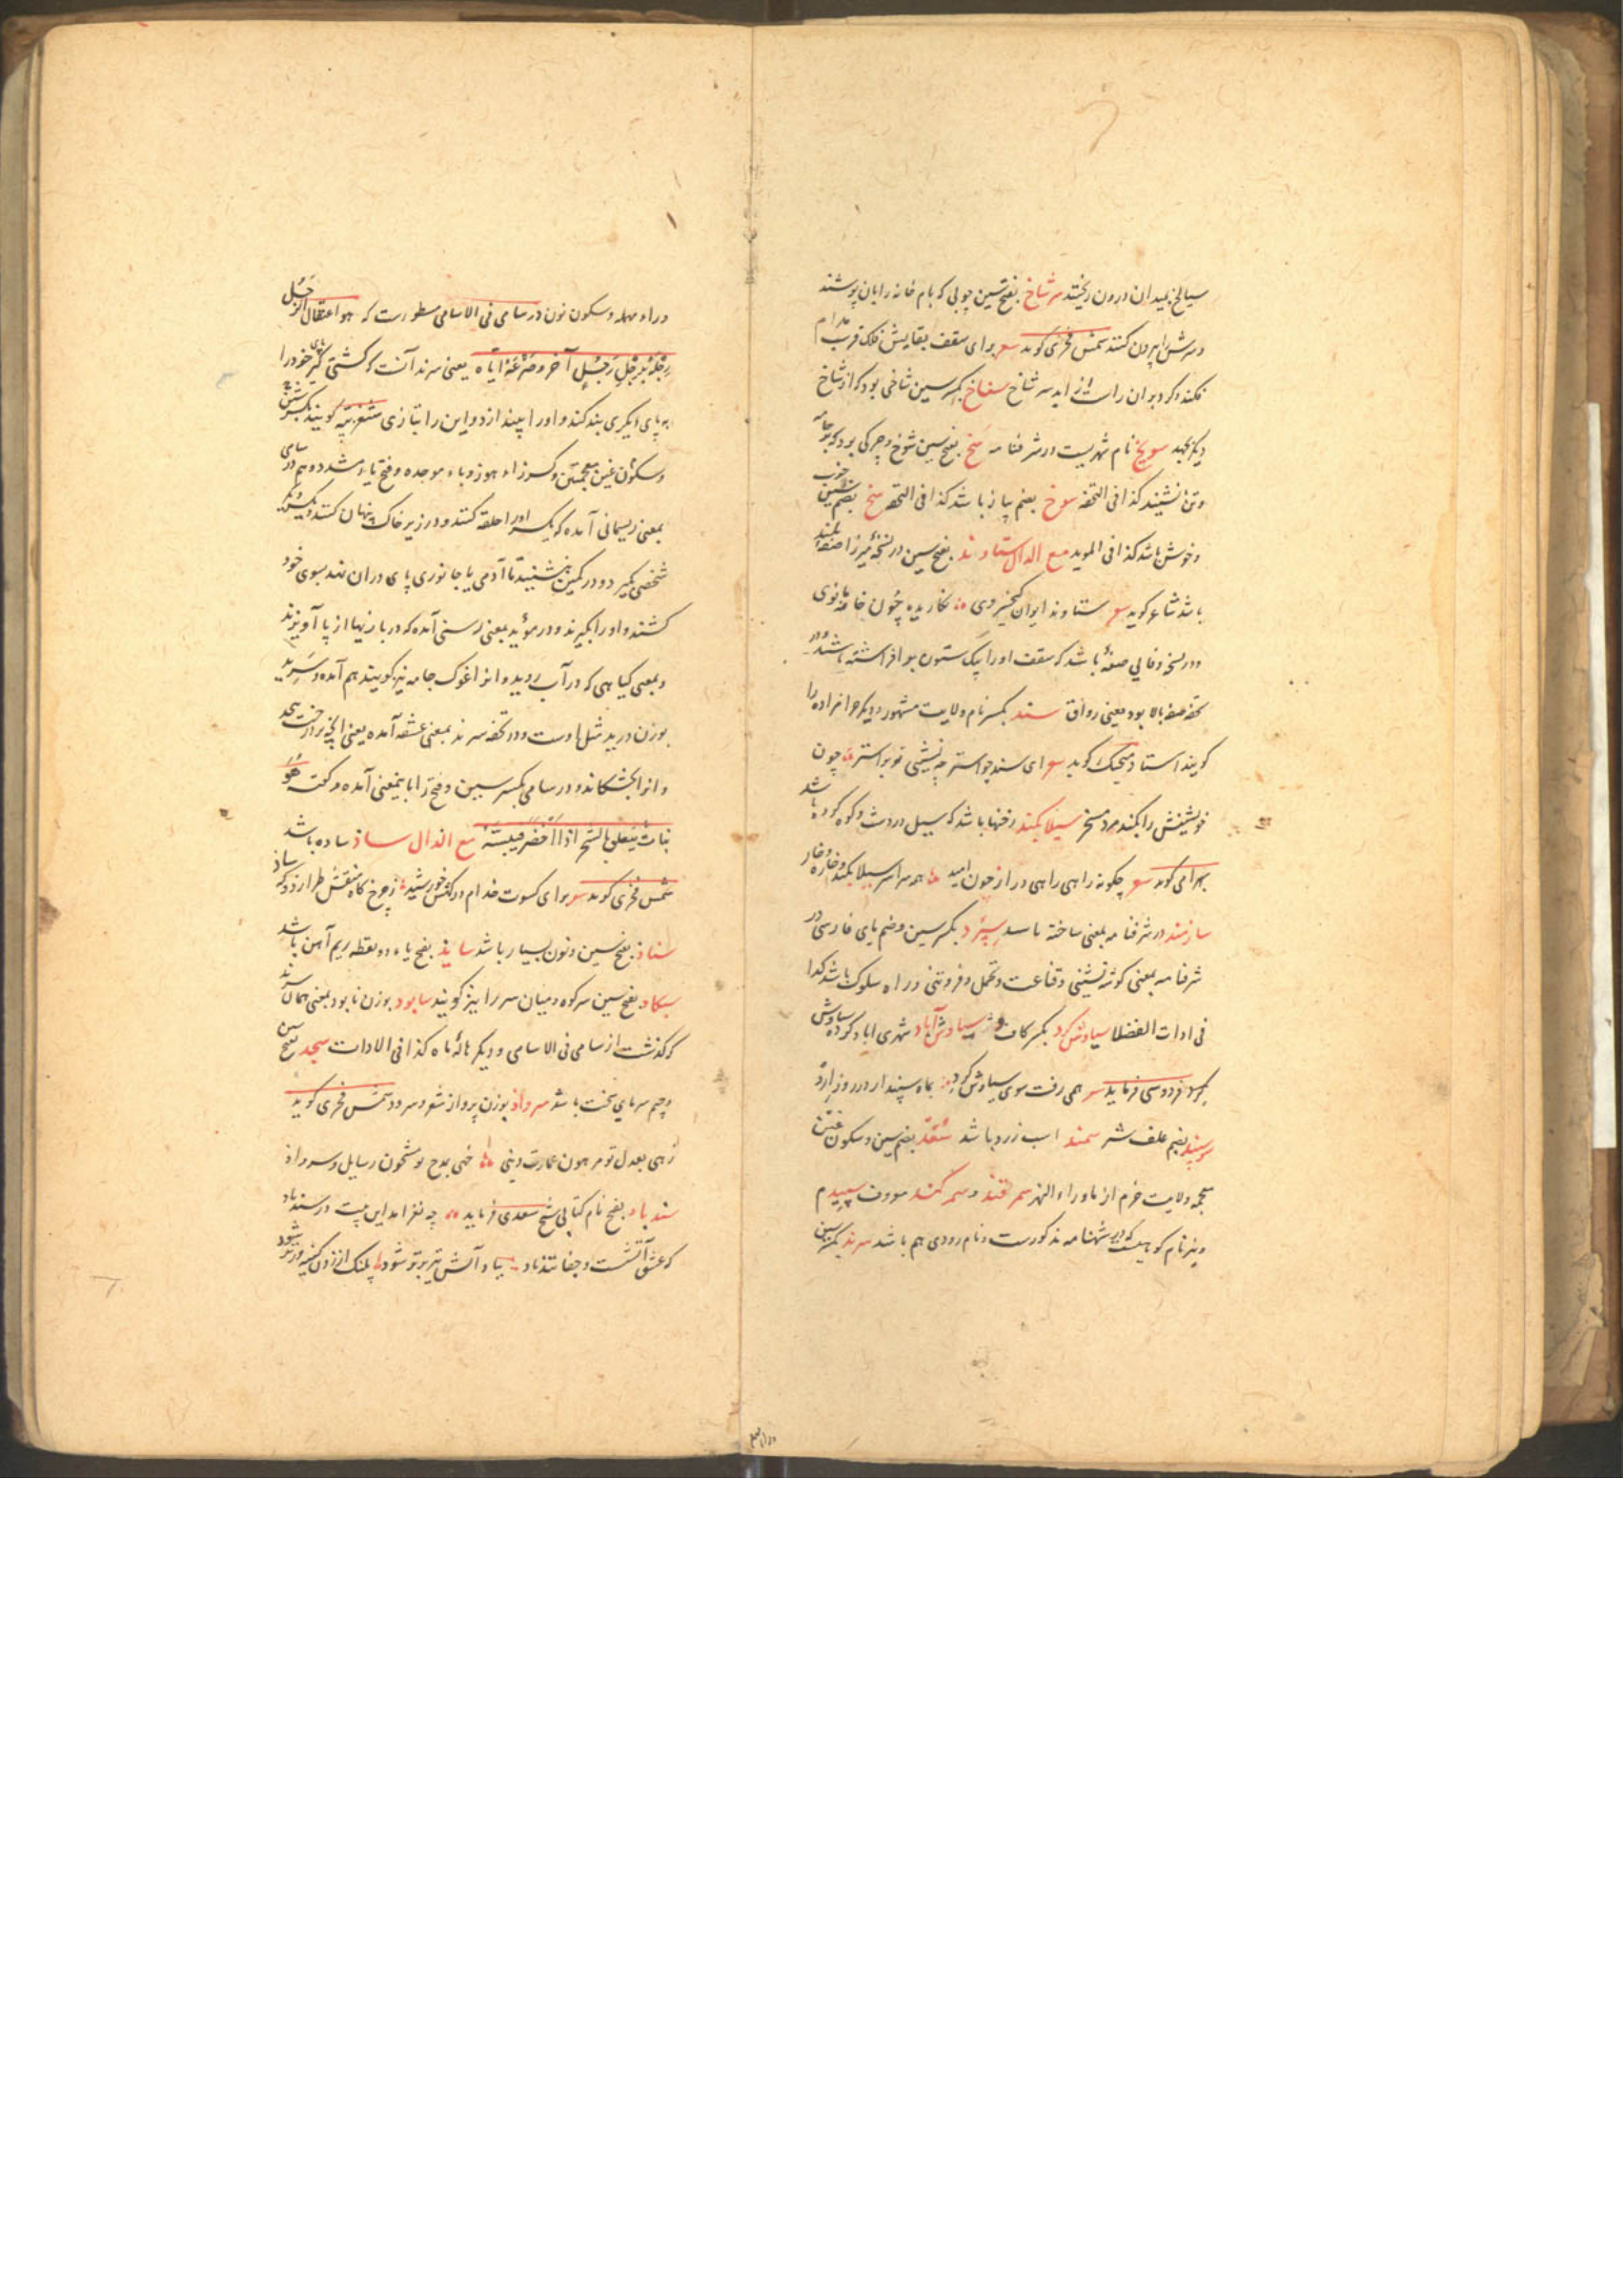 سیالخ بمیدان درون ریخته سرشاخ بفتح سین چوبی که بام خانه را بان پوشند
و سرش را بیرون کنند شمس فخری کوید سع برای سقف بقایش فلک قرب مدام
فکند و کرد بران راست از اید سرشاخ سناخ بکسر سین شاخی بود که از شاخ
دیگر جهد سویخ نام شهریست در شرفنامه سخ بفتح سین شوخ و چرکی بود که بر جامه
و تن نشیند کذا فی التحفه سوخ بضم پیاز باشد کذا فی التحفه سخ بضم سین خوب
و خوش باشد کذا فی الموید مع الدال ستاوند بفتح سین در نسخه میرزا صفه بلند
باشد شاعر کوید سع ستاوند ایوان کیخسروی نکاریده چون خامه مانوی
و در نسخه وفایی صفهٔ باشد که سقف او را بیک ستون بر افراشته باشند و در
تحفه صفه بالا بود یعنی رواق سند بکسر نام ولایت مشهور و دیگر حرامزاده را
کویند استاد منجیک کوید سع ای سند چو استر چه نشینی تو بر استر چون
خویشتنش را بکند مرد مسخر سیلا بکند رخنها باشد که سیل در دشت و کوه کرده باشد
بهرامی کوید سع چکونه راهی راهی دراز چون امید همه سراسر سیلا بکند و خاره و خار
سازمند در شرفنامه بمعنی ساخته باسد سپرد بکسر سین و ضم بای فارسی در
شرفنامه بمعنی کوشه نشینی و قناعت و تحمل و فروتنی در راه سلوک باشد کذا
فی ادات الفضلا سیاوش کرد بکسر کاف سیاوش آباد شهری اباد کرده سیاوش
فردوسی فرماید سع همی رفت سوی سیاوش کرد بماه سپندار در روز ارد
سوسپند بضم علف شتر سمند اسب زرد باشد سغد بضم سین و سکون غین
معجمه ولایت خرم از ماوراء النهر سمرقند و سمرکند معروف سپیدم
و نیز نام کوهیست که در شهنامه مذکورست و نام رودی هم باشد سرند بکسر سین
و راء مهمله و سکون نون در سامی فی الاسامی مسطورست که هو اعتقال الرجل
رجله برجل رجل آخر و صرعه ایاه یعنی سرند آنست که کشتی کیر پای خود را
به پای دیگری بند کند و او را بیندازد و این را بتازی شغربیه کویند بکسر شین
و سکون غین معجمتین و کسر زاء هوز و باء موحده و فتح یاء مشدده و هم در سامی
بمعنی ریسمانی آمده که یکسر او را حلقه کنند و در زیر خاک پنهان کنند و یکسر دیگر
شخصی کیرد و در کمین بنشیند تا آدمی یا جانوری پای دران نهد بسوی خود
کشند و او را بکیرند و در مؤید بمعنی رسنی آمده که در بازیها از پا آویزند
و بمعنی کیاهی که در آب روید و انرا غوک جامه نیز کویند هم آمده و سرید
بوزن درید مثل اوست و در تحفه سرند بمعنی عشقه آمده یعنی انچه بر درخت پیچد
و انرا بخشکاند و در سامی بکسر سین و فتح را باینمعنی آمده و کفته هو
نبات یتعلق بالشجر اذا اخضر فیلبسته مع الذال ساذ ساده باشد
شمس فخری کوید سع برای کسوت خدام درکهش خورشید ز چرخ کاه منقش طرازد و که ساذ
سناذ بفتح سین و نون بسیار باشد سایذ بفتح یاء دو نقطه ریم آهن باشد
سکاد بفتح سین سر کوه و میان سر را نیز کویند سابود بوزن نابود بمعنی همان سرند
که کذشت از سامی فی الاسامی و دیگر هالهٔ ماه کذا فی الادات سجد بفتح سین
و جیم سرمای سخت باشد سرواذ بوزن پرواز شعر و سرود شمس فخری کوید
زهی بعدل تو مرهون عمارت دینی خهی بمدح تو مشحون رسایل و سرواذ
سندباد بفتح نام کتابی شیخ سعدی فرماید چه نغز امد این بیت در سندباد
که عشق آتشست و جفا تندباد بباد آتش تیز برتر شود پلنک از زدن کینه ورتر شود
وراء مهمله